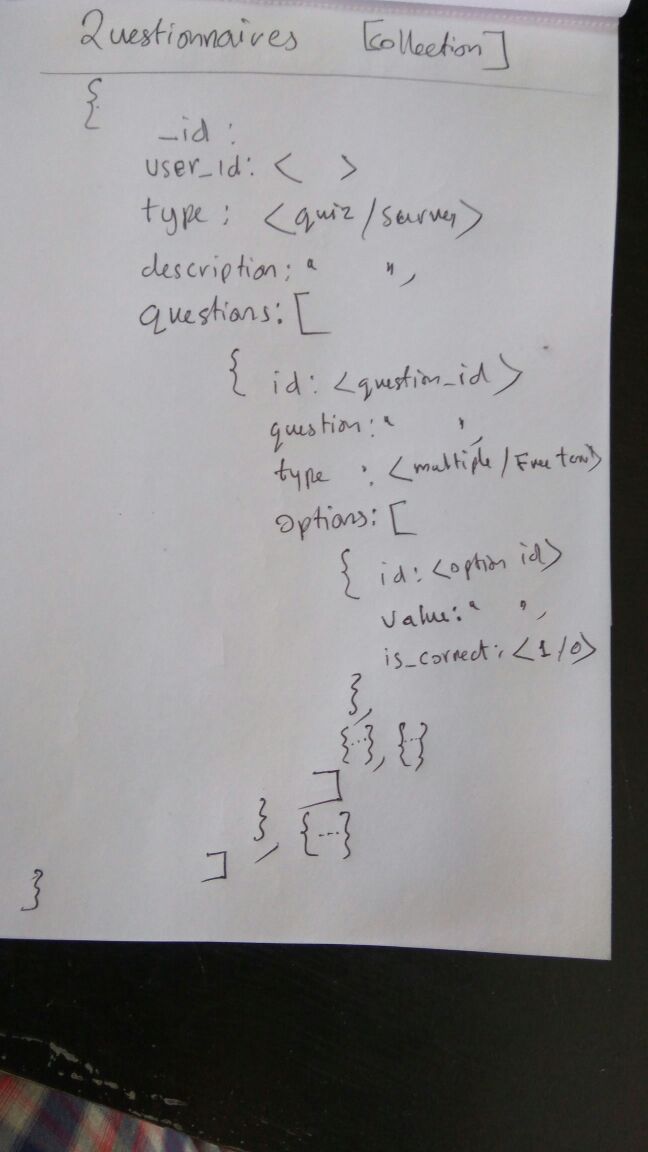 Questionnaires [collection]
{
_id :
user_id: < >
type : <quiz/survey>
description: " ",
questions: [
{ id: <question_id>
question: " ",
type : <multiple/Free text>
options: [
{ id: <option id>
value: " ",
is_correct: <1/0>
},
{...}, {...}
]
}, {...}
]
}